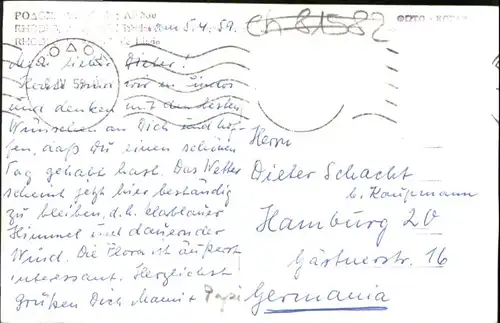 ΡΟΔΟΣ
am 5.4.59.
CA 81582
ΦΩΤΟ
RHODES
Mein lieber Dieter!
Heute sind wir in Lindos
und denken mit den besten
Wünschen an Dich und hof-
fen, daß Du einen schönen
Tag gehabt hast. Das Wetter
scheint jetzt hier beständig
zu bleiben, d.h. blauer
Himmel und dauernder
Wind. Die Flora ist äußerst
interessant. Herzlichst
grüßen Dich Mami + Papi
Herrn
Dieter Schacht
b. Kaupmann
Hamburg 20
Gärtnerstr. 16
Germania